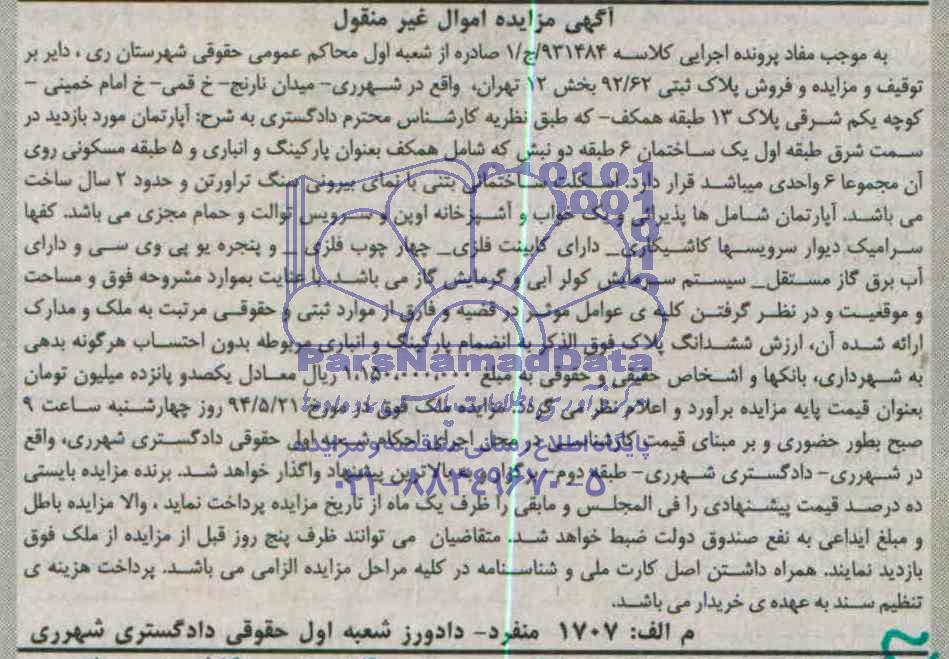 آگهی مزایده اموال غیر منقول
به موجب مفاد پرونده اجرایی کلاسه ۹۳۱۴۸۴/ج/۱ صادره از شعبه اول محاکم عمومی حقوقی شهرستان ری ، دایر بر
توقیف و مزایده و فروش پلاک ثبتی ۹۲/۶۲ بخش ۱۲ تهران، واقع در شهرری- میدان نارنج- خ قمی- خ امام خمینی -
کوچه یکم شرقی پلاک ۱۳ طبقه همکف- که طبق نظریه کارشناس محترم دادگستری به شرح: آپارتمان مورد بازدید در
سمت شرق طبقه اول یک ساختمان ۶ طبقه دو نبش که شامل همکف بعنوان پارکینگ و انباری و ۵ طبقه مسکونی روی
آن مجموعا ۶ واحدی میباشد قرار دارد. اسکلت ساختمانی بتنی با نمای بیرونی سنگ تراورتن و حدود ۲ سال ساخت
می باشد. آپارتمان شامل ها پذیرائی و یک خواب و آشپزخانه اوپن و سرویس توالت و حمام مجزی می باشد. کفها
سرامیک دیوار سرویسها کاشیکاری_ دارای کابینت فلزی_ چهار چوب فلزی _ و پنجره یو پی وی سی و دارای
آب برق گاز مستقل_ سیستم سرمایش کولر آبی و گرمایش گاز می باشد. با عنایت بموارد مشروحه فوق و مساحت
و موقعیت و در نظر گرفتن کلیه ی عوامل موثر در قضیه و فارق از موارد ثبتی و حقوقی مرتبت به ملک و مدارک
ارائه شده آن، ارزش ششدانگ پلاک فوق الذکر به انضمام پارکینگ و انباری مربوطه بدون احتساب هرگونه بدهی
به شهرداری، بانکها و اشخاص حقیقی و حقوقی به مبلغ ۱،۱۵۰،۰۰۰،۰۰۰ ریال معادل یکصدو پانزده میلیون تومان
بعنوان قیمت پایه مزایده برآورد و اعلام نظر می گردد. مزایده ملک فوق در مورخ ۹۴/۵/۲۱ روز چهارشنبه ساعت ۹
صبح بطور حضوری و بر مبنای قیمت کارشناسی در محل اجرای احکام شعبه اول حقوقی دادگستری شهرری، واقع
در شهرری- دادگستری شهرری- طبقه دوم- برگزار و به بالاترین پیشنهاد واگذار خواهد شد. برنده مزایده بایستی
ده درصد قیمت پیشنهادی را فی المجلس و مابقی را ظرف یک ماه از تاریخ مزایده پرداخت نماید ، والا مزایده باطل
و مبلغ ایداعی به نفع صندوق دولت ضبط خواهد شد. متقاضیان می توانند ظرف پنج روز قبل از مزایده از ملک فوق
بازدید نمایند. همراه داشتن اصل کارت ملی و شناسنامه در کلیه مراحل مزایده الزامی می باشد. پرداخت هزینه ی
تنظیم سند به عهده ی خریدار می باشد.
م الف: ۱۷۰۷ منفرد- دادورز شعبه اول حقوقی دادگستری شهرری
ParsNamadData
پایگاه اطلاع رسانی مناقصه و مزایده
۰۲۱-۸۸۳۴۹۶۷۰-۵